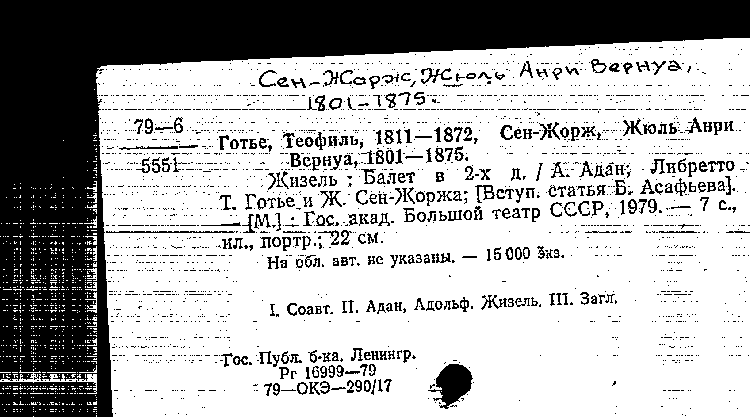 Сен-Жорж, Жюль Анри Вернуа,
1801-1875.
79—6
5551
Готье, Теофиль, 1811—1872, Сен-Жорж, Жюль Анри
Вернуа, 1801—1875.
Жизель : Балет в 2-х д. / А. Адан; Либретто
Т. Готье и Ж. Сен-Жоржа; [Вступ. статья Б. Асафьева].
— [М.] : Гос. акад. Большой театр СССР, 1979. — 7 с.,
ил., портр.; 22 см.
На обл. авт. не указаны. — 15 000 экз.
I. Соавт. II. Адан, Адольф. Жизель. III. Загл.
Гос. Публ. б-ка. Ленингр.
Рг 16999—79
79—ОКЭ—290/17